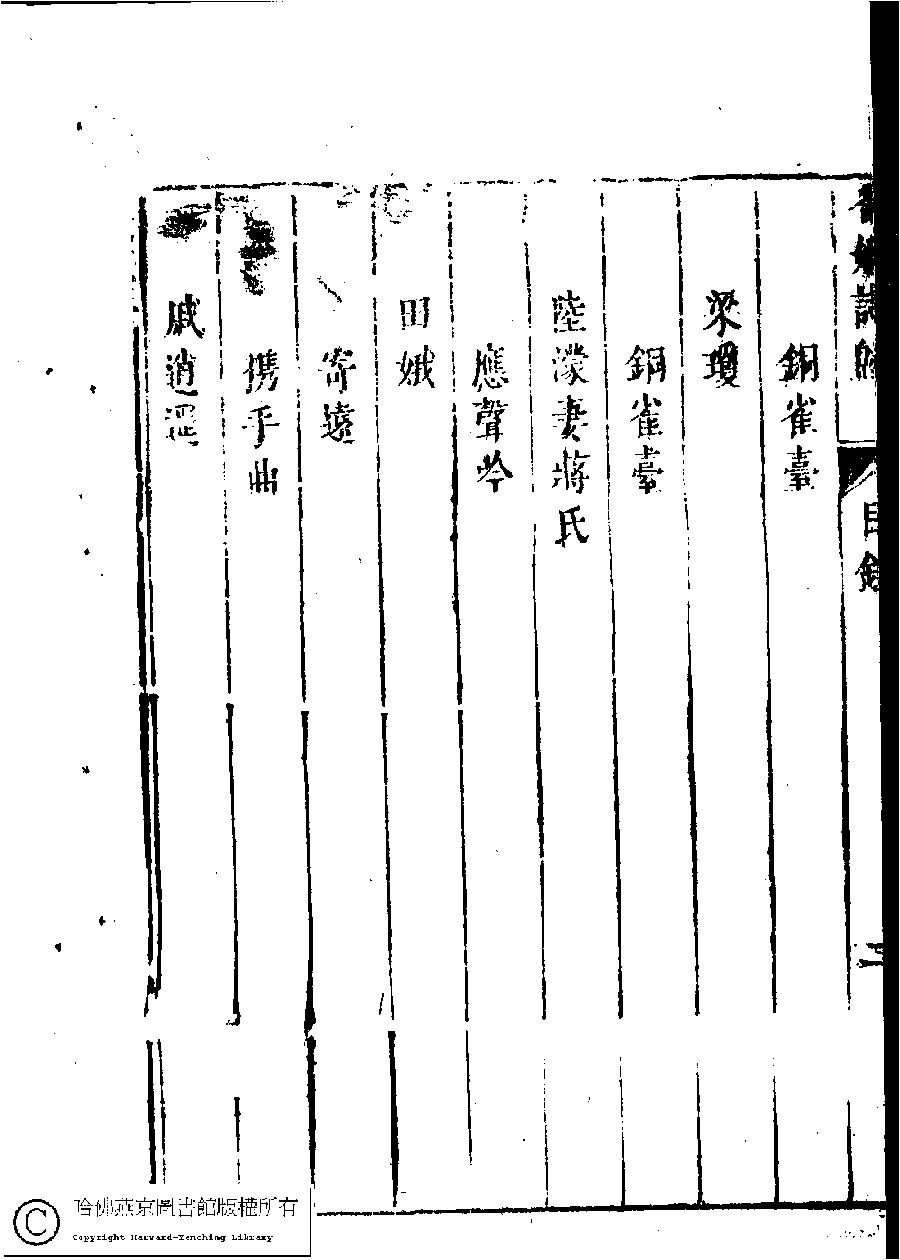 目錄
二
銅雀臺
梁瓊
銅雀臺
陸濛妻蔣氏
應聲吟
田娥
寄遠
携手曲
戚逍遥
哈佛燕京圖書館版權所有
Copyright Harvard-Yenching Library